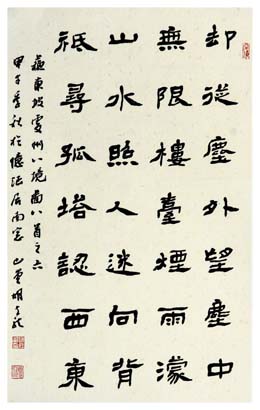 却從塵外望塵中
無限樓臺煙雨濛
山水照人迷向背
祗尋孤塔認西東
蘇東坡虔州八境圖八首之六
甲午季秋於憶法居南窗